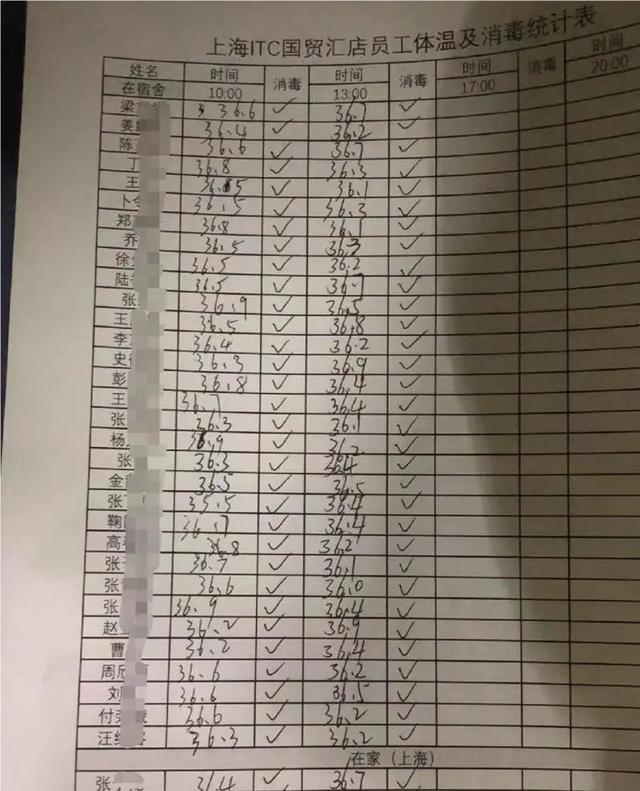 上海ITC国贸汇店员工体温及消毒统计表
姓名 时间 消毒 时间 消毒 时间 消毒 时间
在宿舍 10:00 13:00 17:00 20:00
梁 36.6 ✓ 36.7 ✓
姜 36.4 ✓ 36.2 ✓
陈 36.6 ✓ 36.7 ✓
丁 36.8 ✓ 36.3 ✓
王 36.5 ✓ 36.1 ✓
卜 36.5 ✓ 36.3 ✓
郑 36.8 ✓ 36.1 ✓
乔 36.5 ✓ ✓
徐 36.5 ✓ 36.2 ✓
陆 36.5 ✓ 36.7 ✓
张 36.9 ✓ 36.5 ✓
王 36.5 ✓ 36.8 ✓
李 36.4 ✓ 36.2 ✓
史 36.3 ✓ 36.9 ✓
彭 36.8 ✓ 36.4 ✓
王 36.7 ✓ 36.4 ✓
张 36.3 ✓ 36.1 ✓
杨 36.9 ✓ 36.2 ✓
张 36.3 ✓ 36.4 ✓
金 36.5 ✓ 36.5 ✓
张 35.5 ✓ 36.4 ✓
鞠 36.7 ✓ 36.4 ✓
高 36.8 ✓ 36.2 ✓
张 36.7 ✓ 36.1 ✓
张 36.6 ✓ 36.0 ✓
张 36.9 ✓ 36.4 ✓
赵 36.2 ✓ 36.9 ✓
曹 36.2 ✓ 36.4 ✓
周欣 36.6 ✓ 36.2 ✓
刘 36.6 ✓ 36.5 ✓
付 36.6 ✓ 36.2 ✓
汪 36.3 ✓ 36.2 ✓
在家（上海）
张 ✓ 36.7 ✓